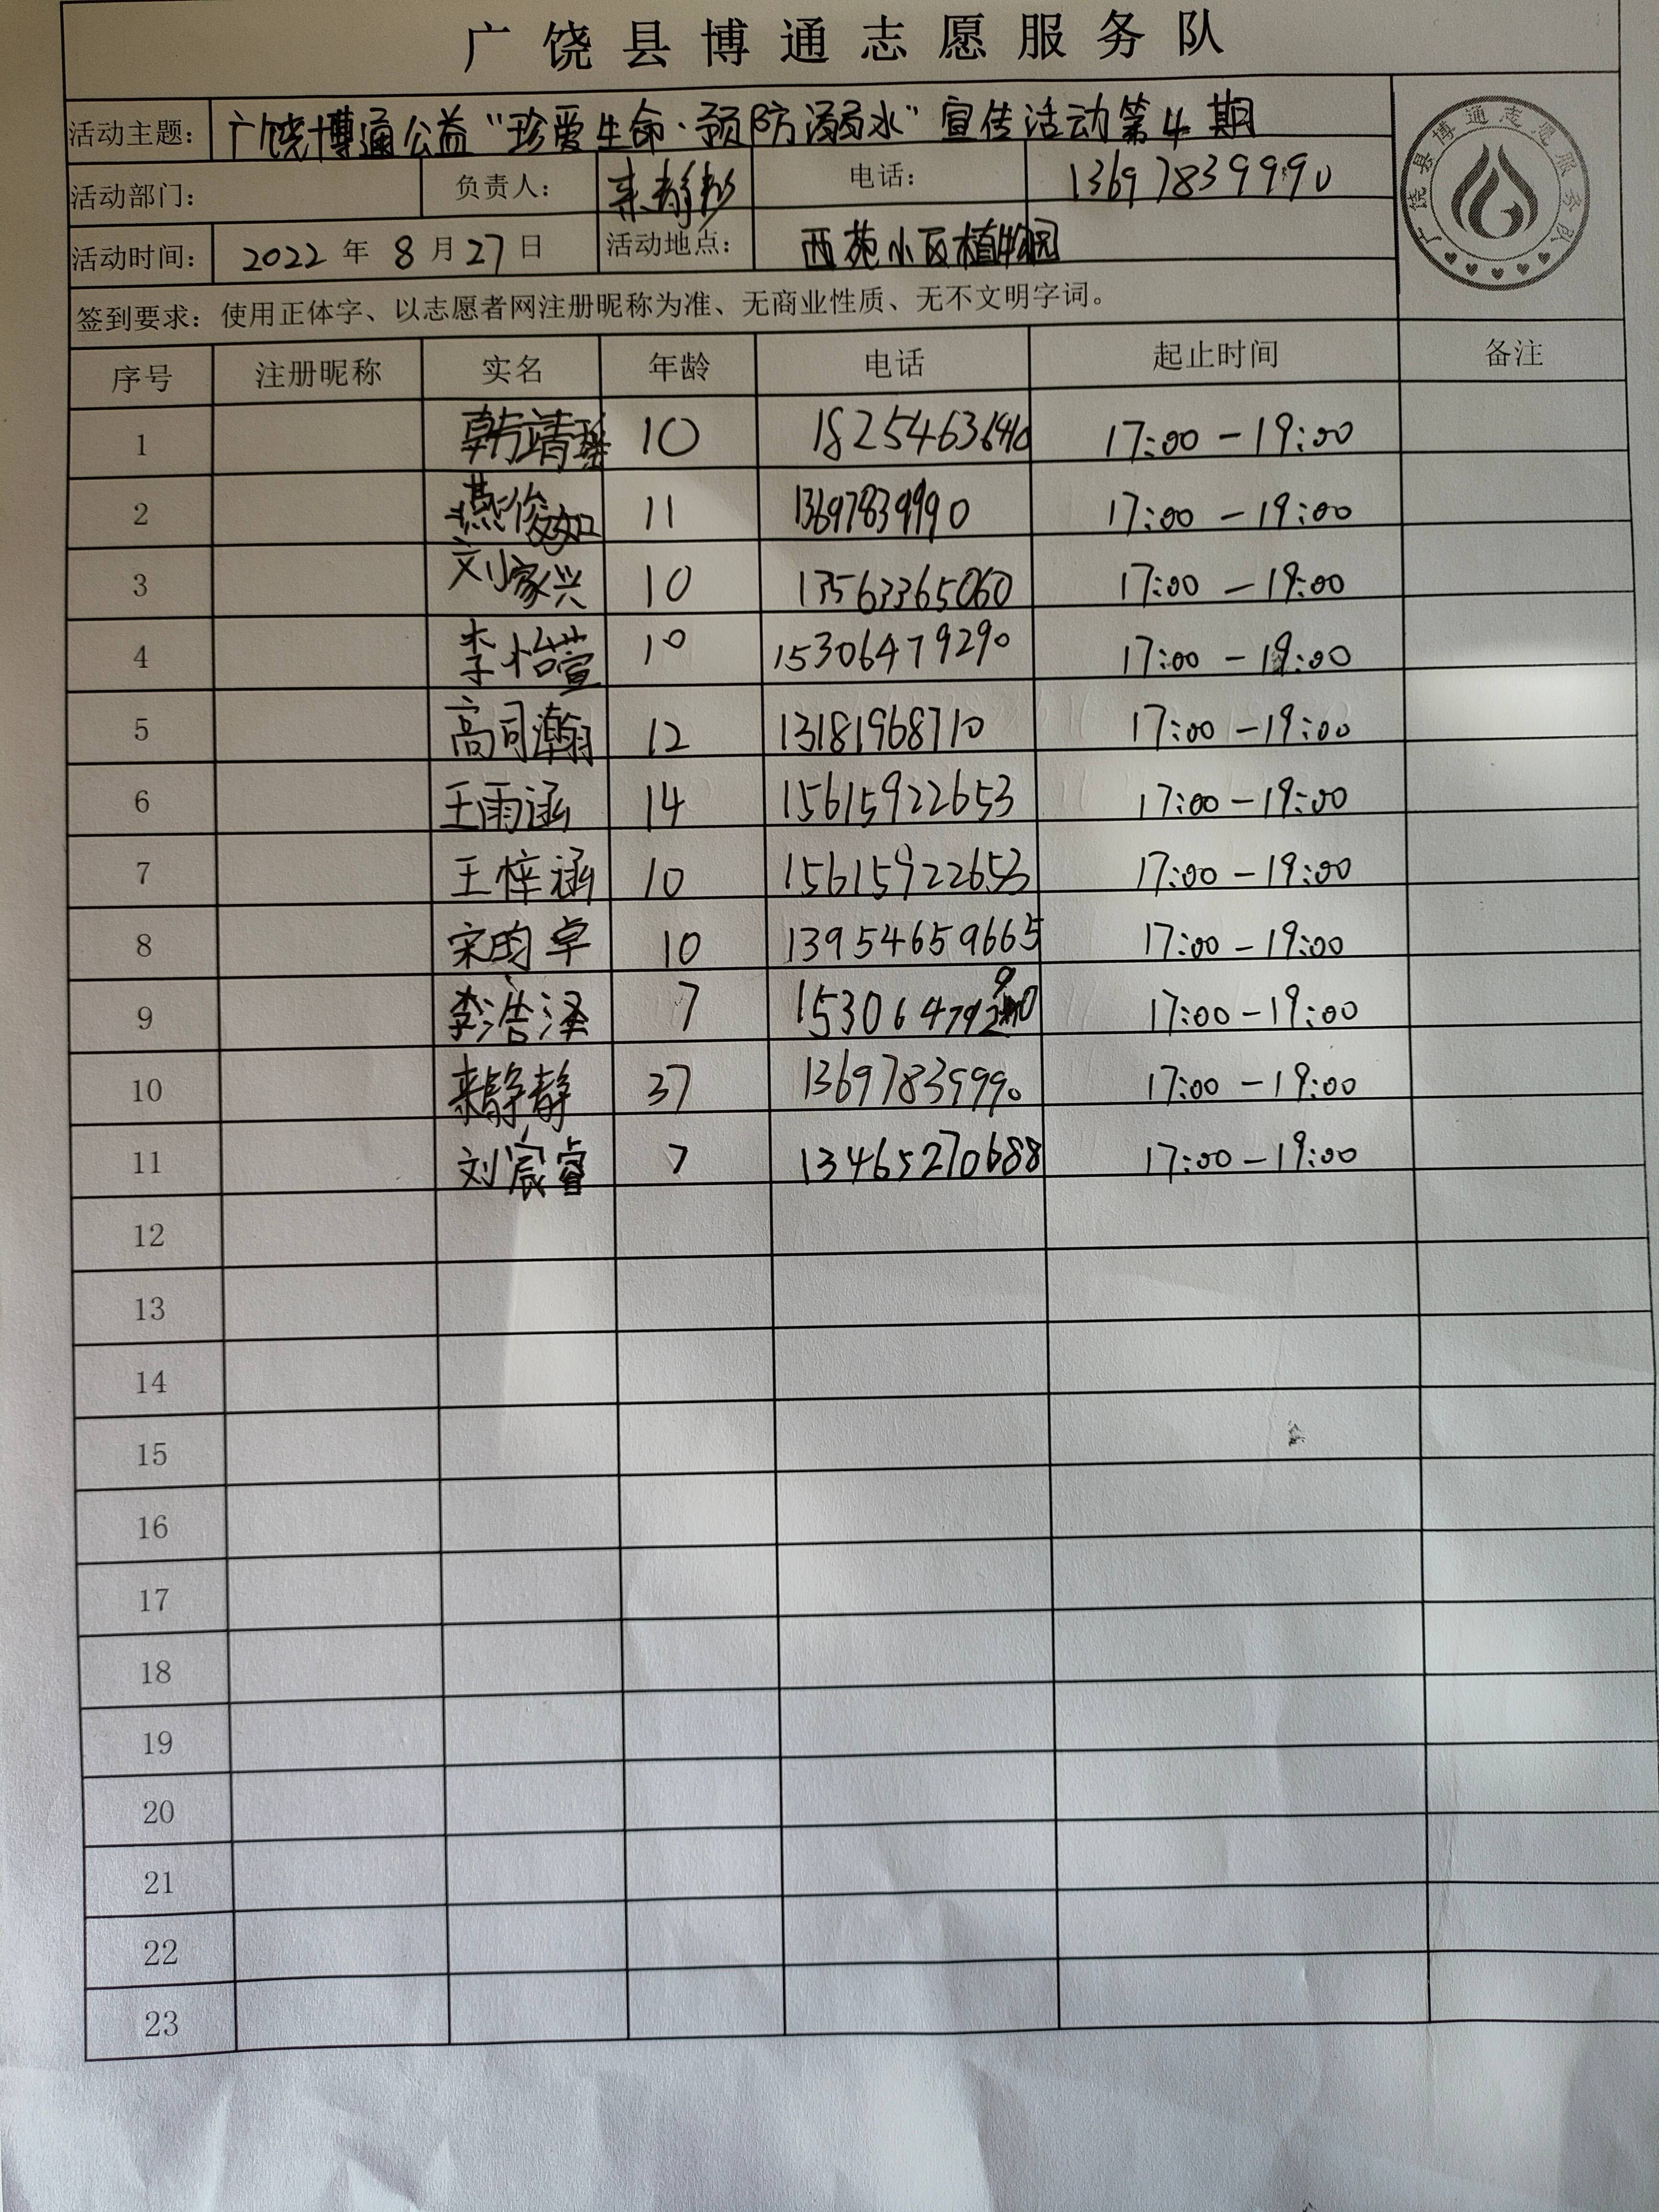 广饶县博通志愿服务队
活动主题： 广饶博通公益“珍爱生命·预防溺水”宣传活动第4期
活动部门： 负责人： 来静静 电话： 13697839990
活动时间： 2022年8月27日 活动地点： 西苑小区植物园
广饶县博通志愿服务队
签到要求：使用正体字、以志愿者网注册昵称为准、无商业性质、无不文明字词。
序号 注册昵称 实名 年龄 电话 起止时间 备注
1 韩靖瑶 10 18254636410 17:00-19:00
2 燕俊如 11 13697839990 17:00-19:00
3 刘家兴 10 13563365060 17:00-19:00
4 李怡萱 10 15306479290 17:00-19:00
5 高司瀚 12 13181968710 17:00-19:00
6 王雨涵 14 15615922653 17:00-19:00
7 王梓涵 10 15615922653 17:00-19:00
8 宋昀卓 10 13954659665 17:00-19:00
9 李浩泽 7 15306479290 17:00-19:00
10 来静静 37 13697839990 17:00-19:00
11 刘宸睿 7 13465270688 17:00-19:00
12
13
14
15
16
17
18
19
20
21
22
23